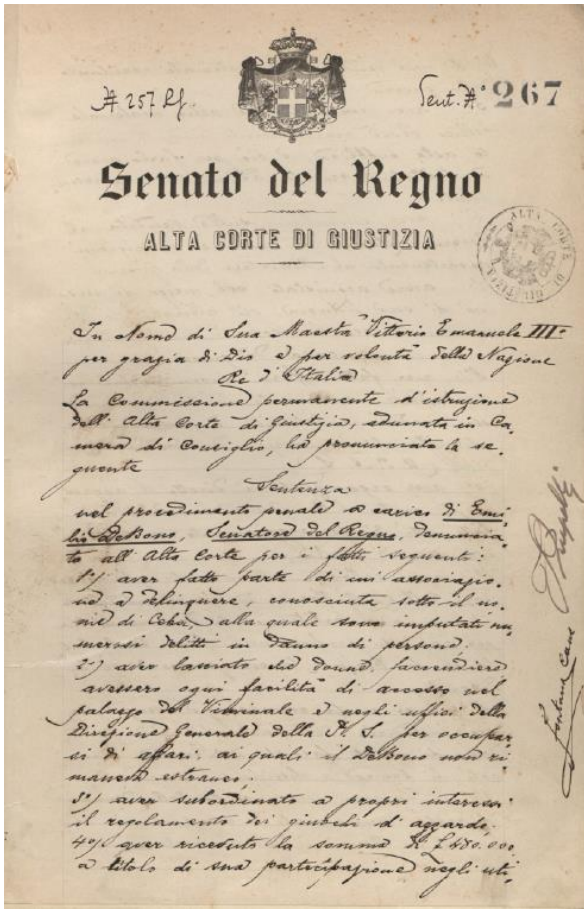 Sent. N° 267
Senato del Regno
ALTA CORTE DI GIUSTIZIA
ALTA CORTE DI GIUSTIZIA
In Nome di Sua Maestà Vittorio Emanuele III°
per grazia di Dio e per volontà della Nazione
Re d'Italia
La Commissione permanente d'istruzione
dell'Alta Corte di Giustizia, adunata in Ca-
mera di Consiglio, ha pronunciato la se-
guente
Sentenza
nel procedimento penale a carico di Emi-
lio De Bono, Senatore del Regno, denuncia-
to all'Alta Corte per i fatti seguenti:
1°) aver fatto parte di un'associazio-
ne a delinquere, conosciuta sotto il no-
me di Ceka, alla quale sono imputati nu-
merosi delitti in danno di persone;
2°) aver lasciato che donne faccendiere
avessero ogni facilità di accesso nel
palazzo del Viminale e negli uffici della
Direzione Generale della P. S. per occupar-
si di affari, ai quali il De Bono non ri-
maneva estraneo;
3°) aver subordinato a propri interessi
il regolamento dei giuochi d'azzardo;
4°) aver ricevuto la somma di £ 480.000
a titolo di sua partecipazione negli uti-
Fontana Cane